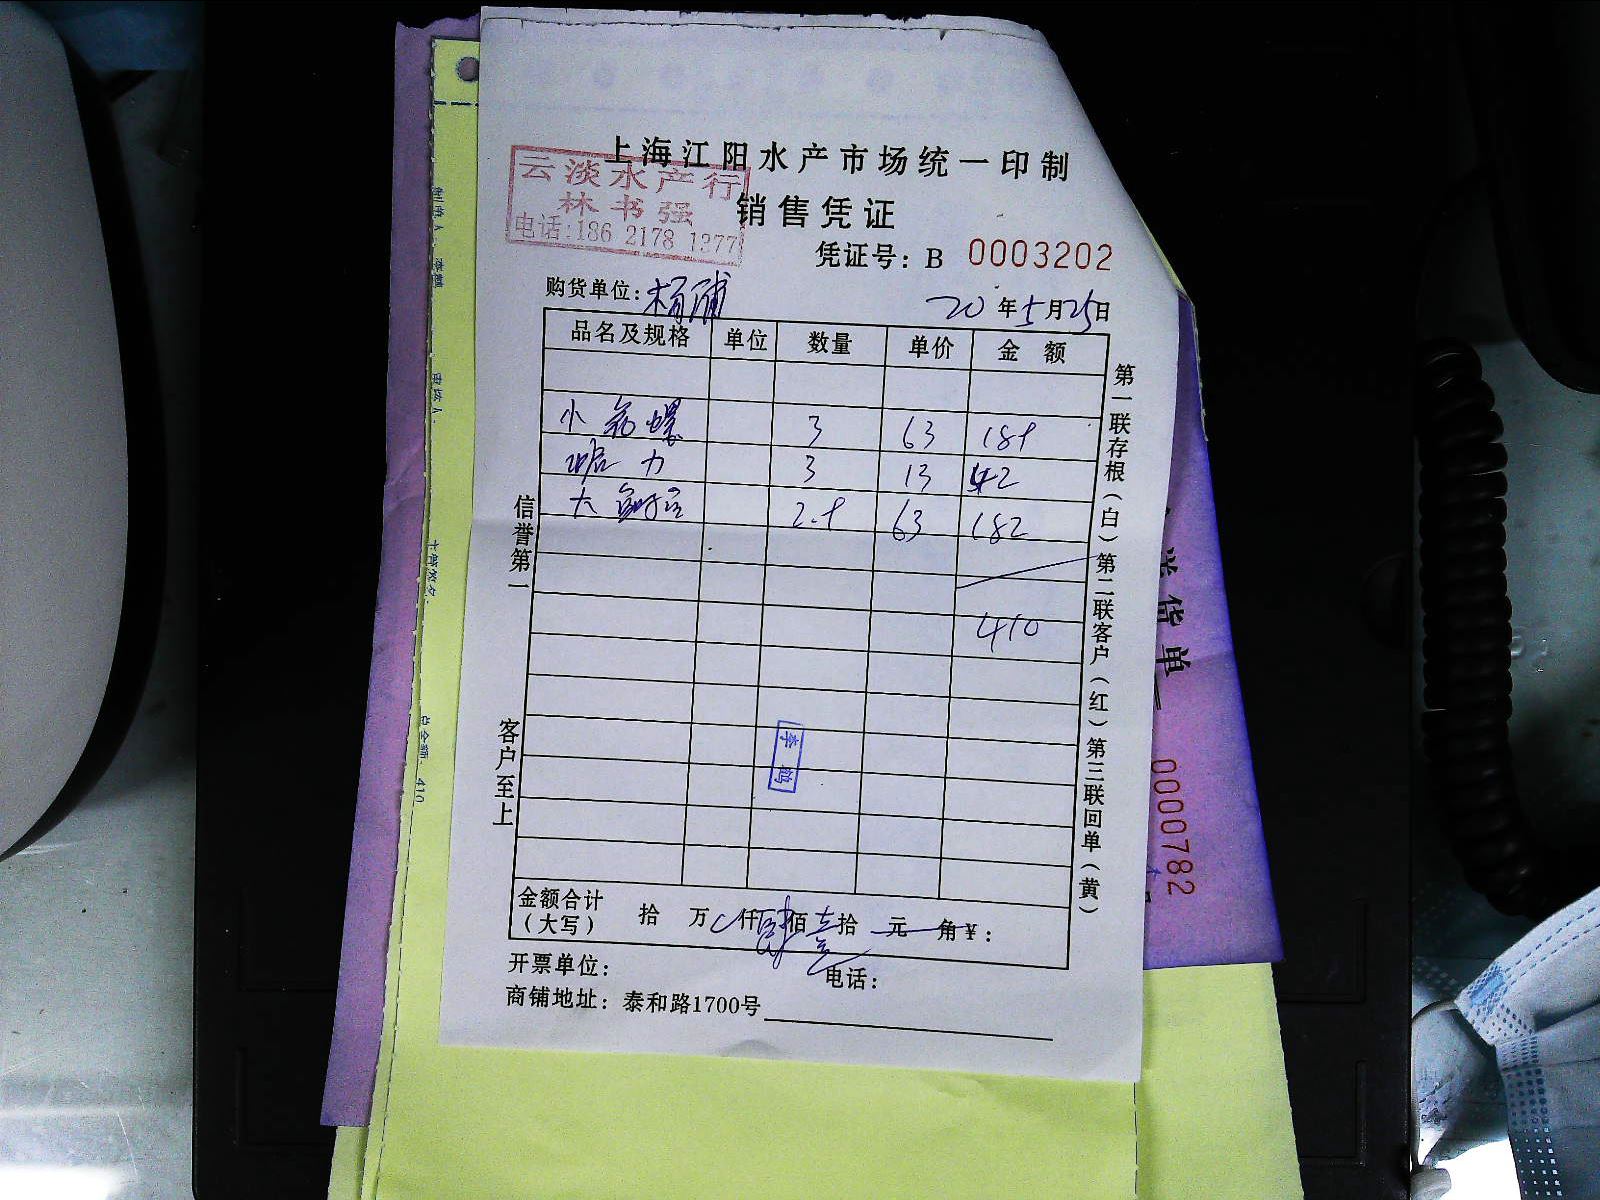 上海江阳水产市场统一印制
云淡水产行
林书强
电话:186 2178 1377
销售凭证
凭证号: B 0003202
购货单位: 杨浦
20年5月25日
品名及规格 单位 数量 单价 金额
小 螺 3 63 189
蛤力 3 13 42
大 2.9 63 182
410
李鹤
金额合计(大写) 拾 万 仟 肆佰壹拾 元 角 ¥:
开票单位: 电话:
商铺地址: 泰和路1700号
信誉第一
客户至上
第一联存根(白) 第二联客户(红) 第三联回单(黄)
货单
0000782
总金额: 410